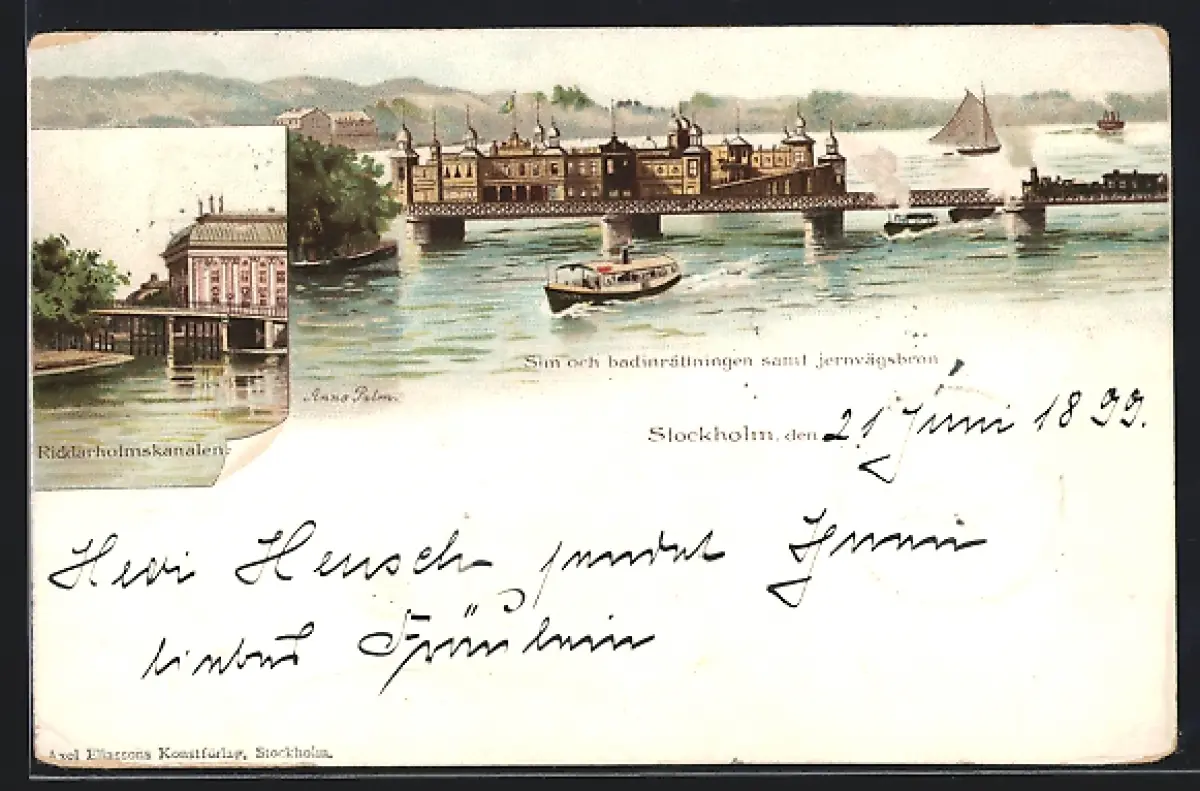 Sim och badinrättningen samt jernvägsbron
Anna Palm.
Riddarholmskanalen.
Stockholm, den 21 Juni 1899.
Herr Hensch sendet Ihnen
liebes Fräulein
Axel Eliassons Konstförlag, Stockholm.